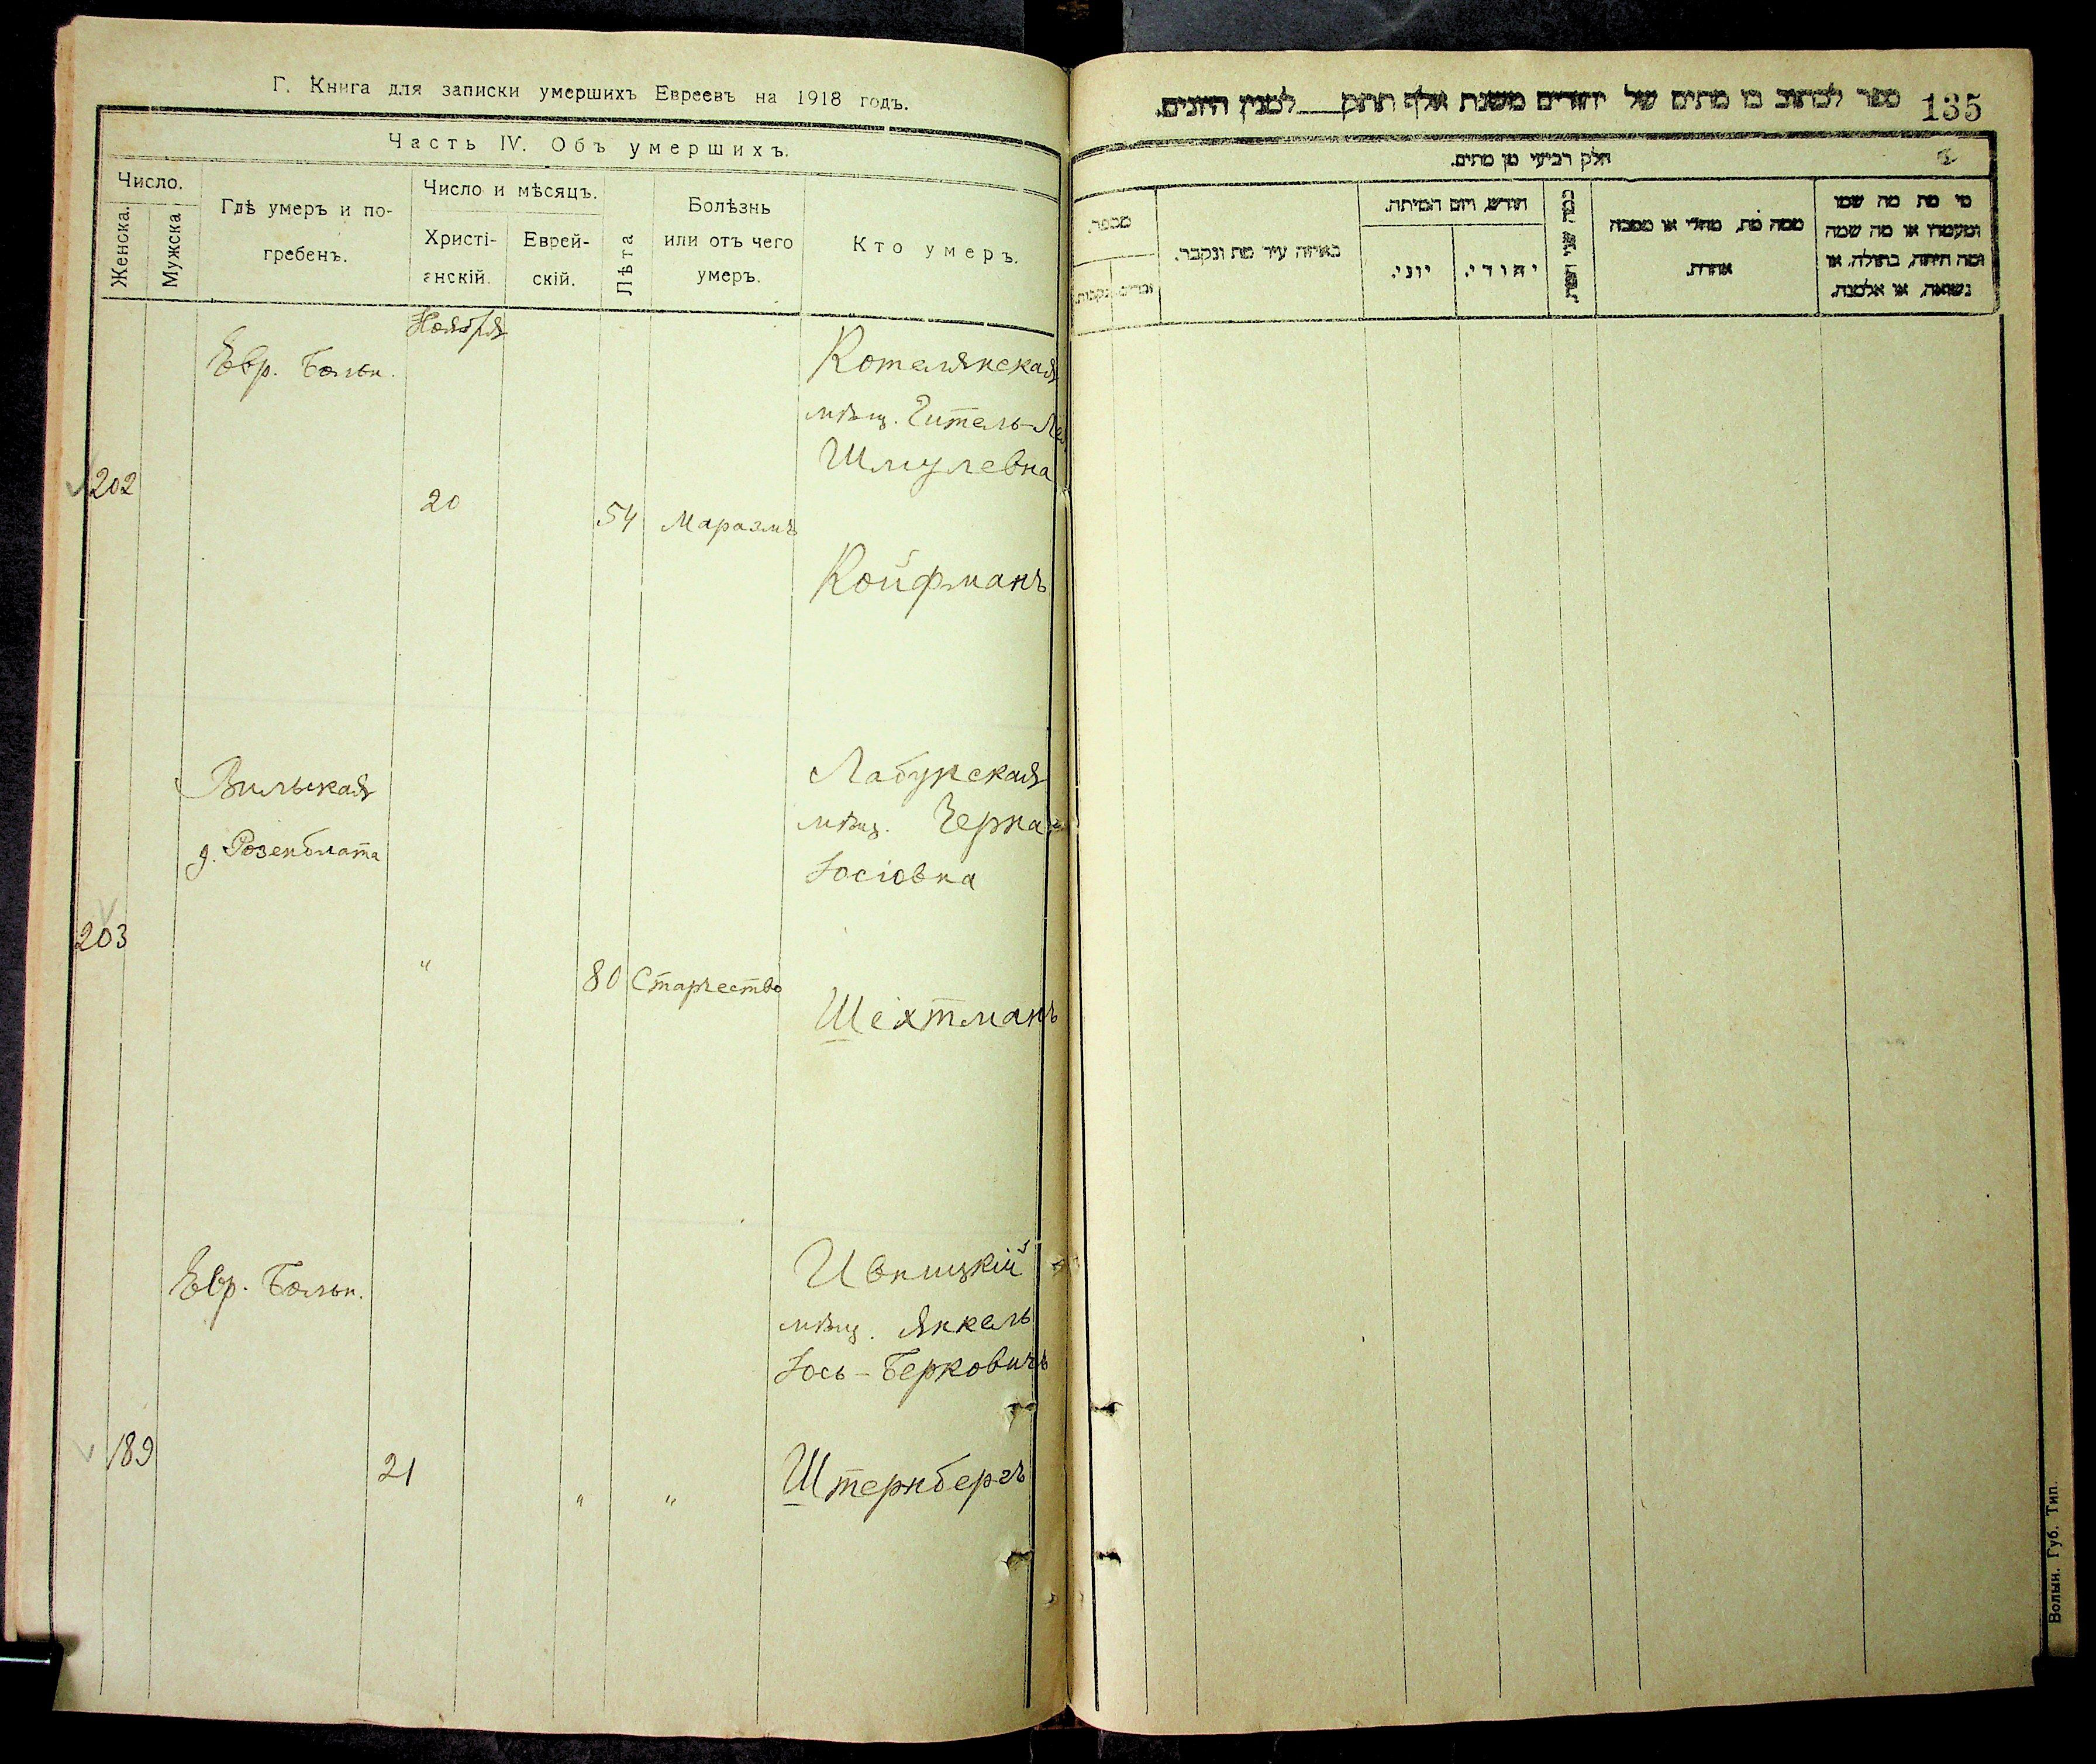 Г. Книга для записки умершихъ Евреевъ на 1918 годъ.
Часть IV. Объ умершихъ.
Число.
Женска.
Мужска
Гдѣ умеръ и по-
гребенъ.
Число и мѣсяцъ.
Христі-
анскій.
Еврей-
скій.
Лѣта
Болѣзнь
или отъ чего
умеръ.
Кто умеръ.
Ноября
Евр. Больн.
Котелянская
мѣщ. Гитель-
Шмулевна
202
20
54
Маразмъ
Койфманъ
Вильская
д. Розенблата
Лабунская
мѣщ. Черна
Іосіовна
203
"
80
Старчество
Шехтманъ
Евр. Больн.
Ивницкій
мѣщ. Янкель
Іось-Берковичъ
189
21
"
"
Штернбергъ
ספר לכתוב בו מתים של יהודים משנת אלף תתק לمنין היונים.
135
חלק רביעי מן מתים.
מספר.
זכרים
נקבות
באיזה עיר מת ונקבר.
חודש, ויום המיתה.
יוני.
יהודי.
ממה מת, מחלי או מסבה
אחרת.
מי מת מה שמו
ומעמדו או מה שמה
ומה היתה, בתולה, או
נשואה, או אלמנה.
Волын. Губ. Тип.